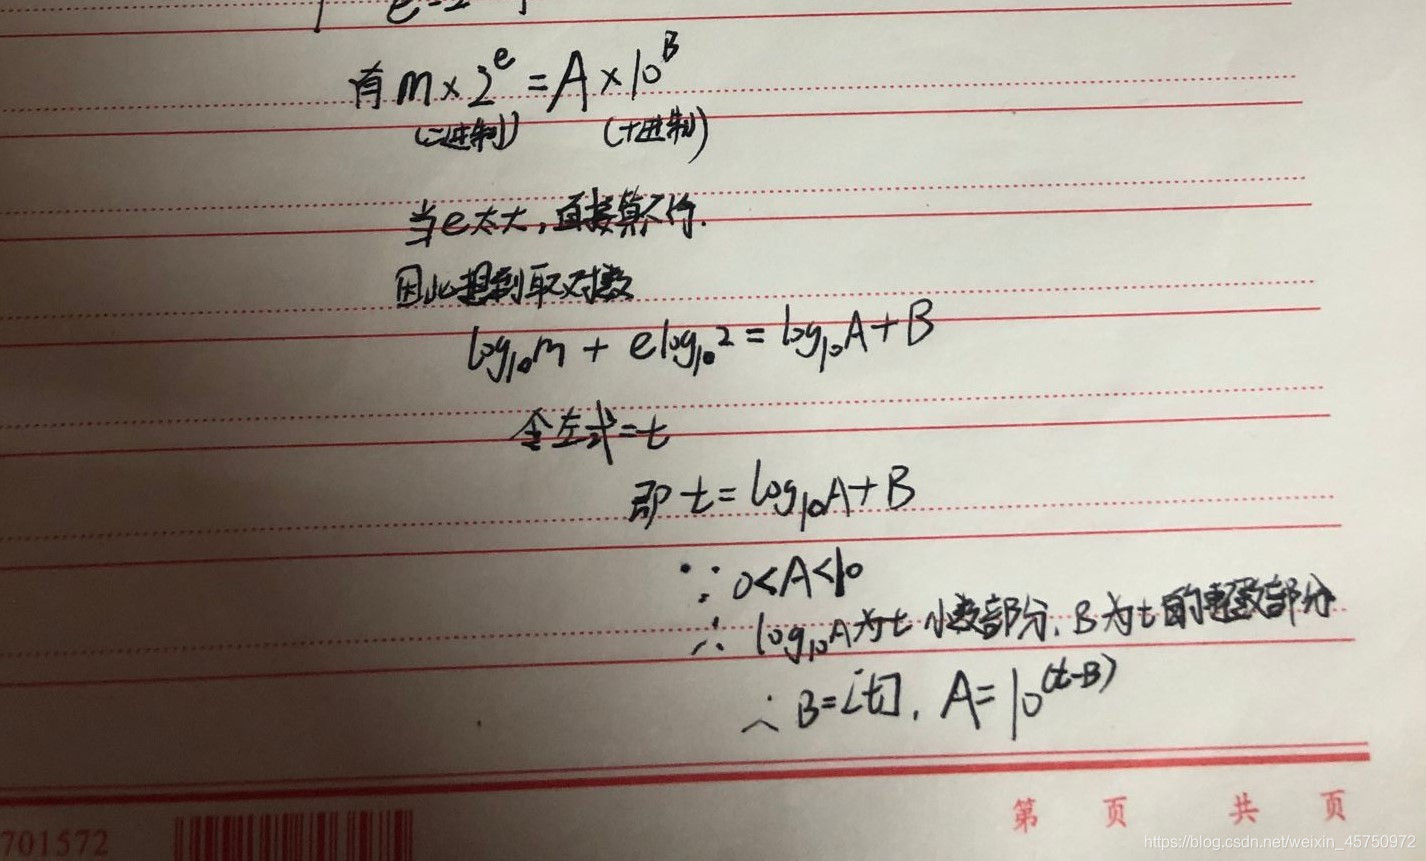 有 m × 2^e = A × 10^B
(二进制) (十进制)
当e太大,直接算不行.
因此想到取对数
log₁₀m + elog₁₀2 = log₁₀A + B
令左式=t
即 t = log₁₀A + B
∵ 0<A<10
∴ log₁₀A为t小数部分, B为t的整数部分
∴ B=[t], A=10^(t-B)
第 页 共 页
701572
https://blog.csdn.net/weixin_45750972